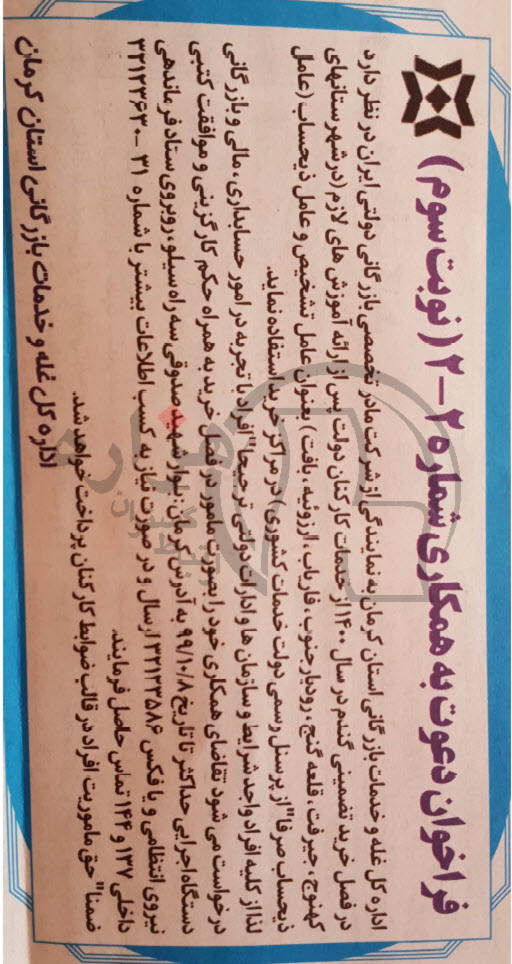 فراخوان دعوت به همکاری شماره ۲-۲ (نوبت سوم)
اداره کل غله و خدمات بازرگانی استان کرمان به نمایندگی از شرکت مادر تخصصی بازرگانی دولتی ایران در نظر دارد
در فصل خرید تضمینی گندم در سال ۱۴۰۰ از خدمات کارکنان دولت پس از ارائه آموزش های لازم (در شهرستانهای
کهنوج ، جیرفت ، قلعه گنج ، رودبار جنوب ، فاریاب ، ارزوئیه ، بافت ) بعنوان عامل تشخیص و عامل ذیحساب (عامل
ذیحساب صرفا" از پرسنل رسمی دولت خدمات کشوری) در مراکز خرید استفاده نماید.
لذا از کلیه افراد واجد شرایط و سازمان ها و ادارات دولتی ترجیحا" افراد با تجربه در امور حسابداری ، مالی و بازرگانی
درخواست می شود تقاضای همکاری خود را بصورت مامور در فصل خرید به همراه حکم کارگزینی و موافقت کتبی
دستگاه اجرایی حداکثر تا تاریخ ۹۹/۱۰/۸ به آدرس کرمان : بلوار شهید صدوقی سه راه سیلو ، روبروی ستاد فرماندهی
نیروی انتظامی و یا فکس ۳۲۱۲۳۵۸۶ ارسال و در صورت نیاز به کسب اطلاعات بیشتر با شماره ۳۱ -۳۲۱۲۳۶۳۰
داخلی ۱۳۷ و ۱۴۴ تماس حاصل فرمایند.
ضمنا" حق ماموریت افراد در قالب ضوابط کارکنان پرداخت خواهد شد.
اداره کل غله و خدمات بازرگانی استان کرمان